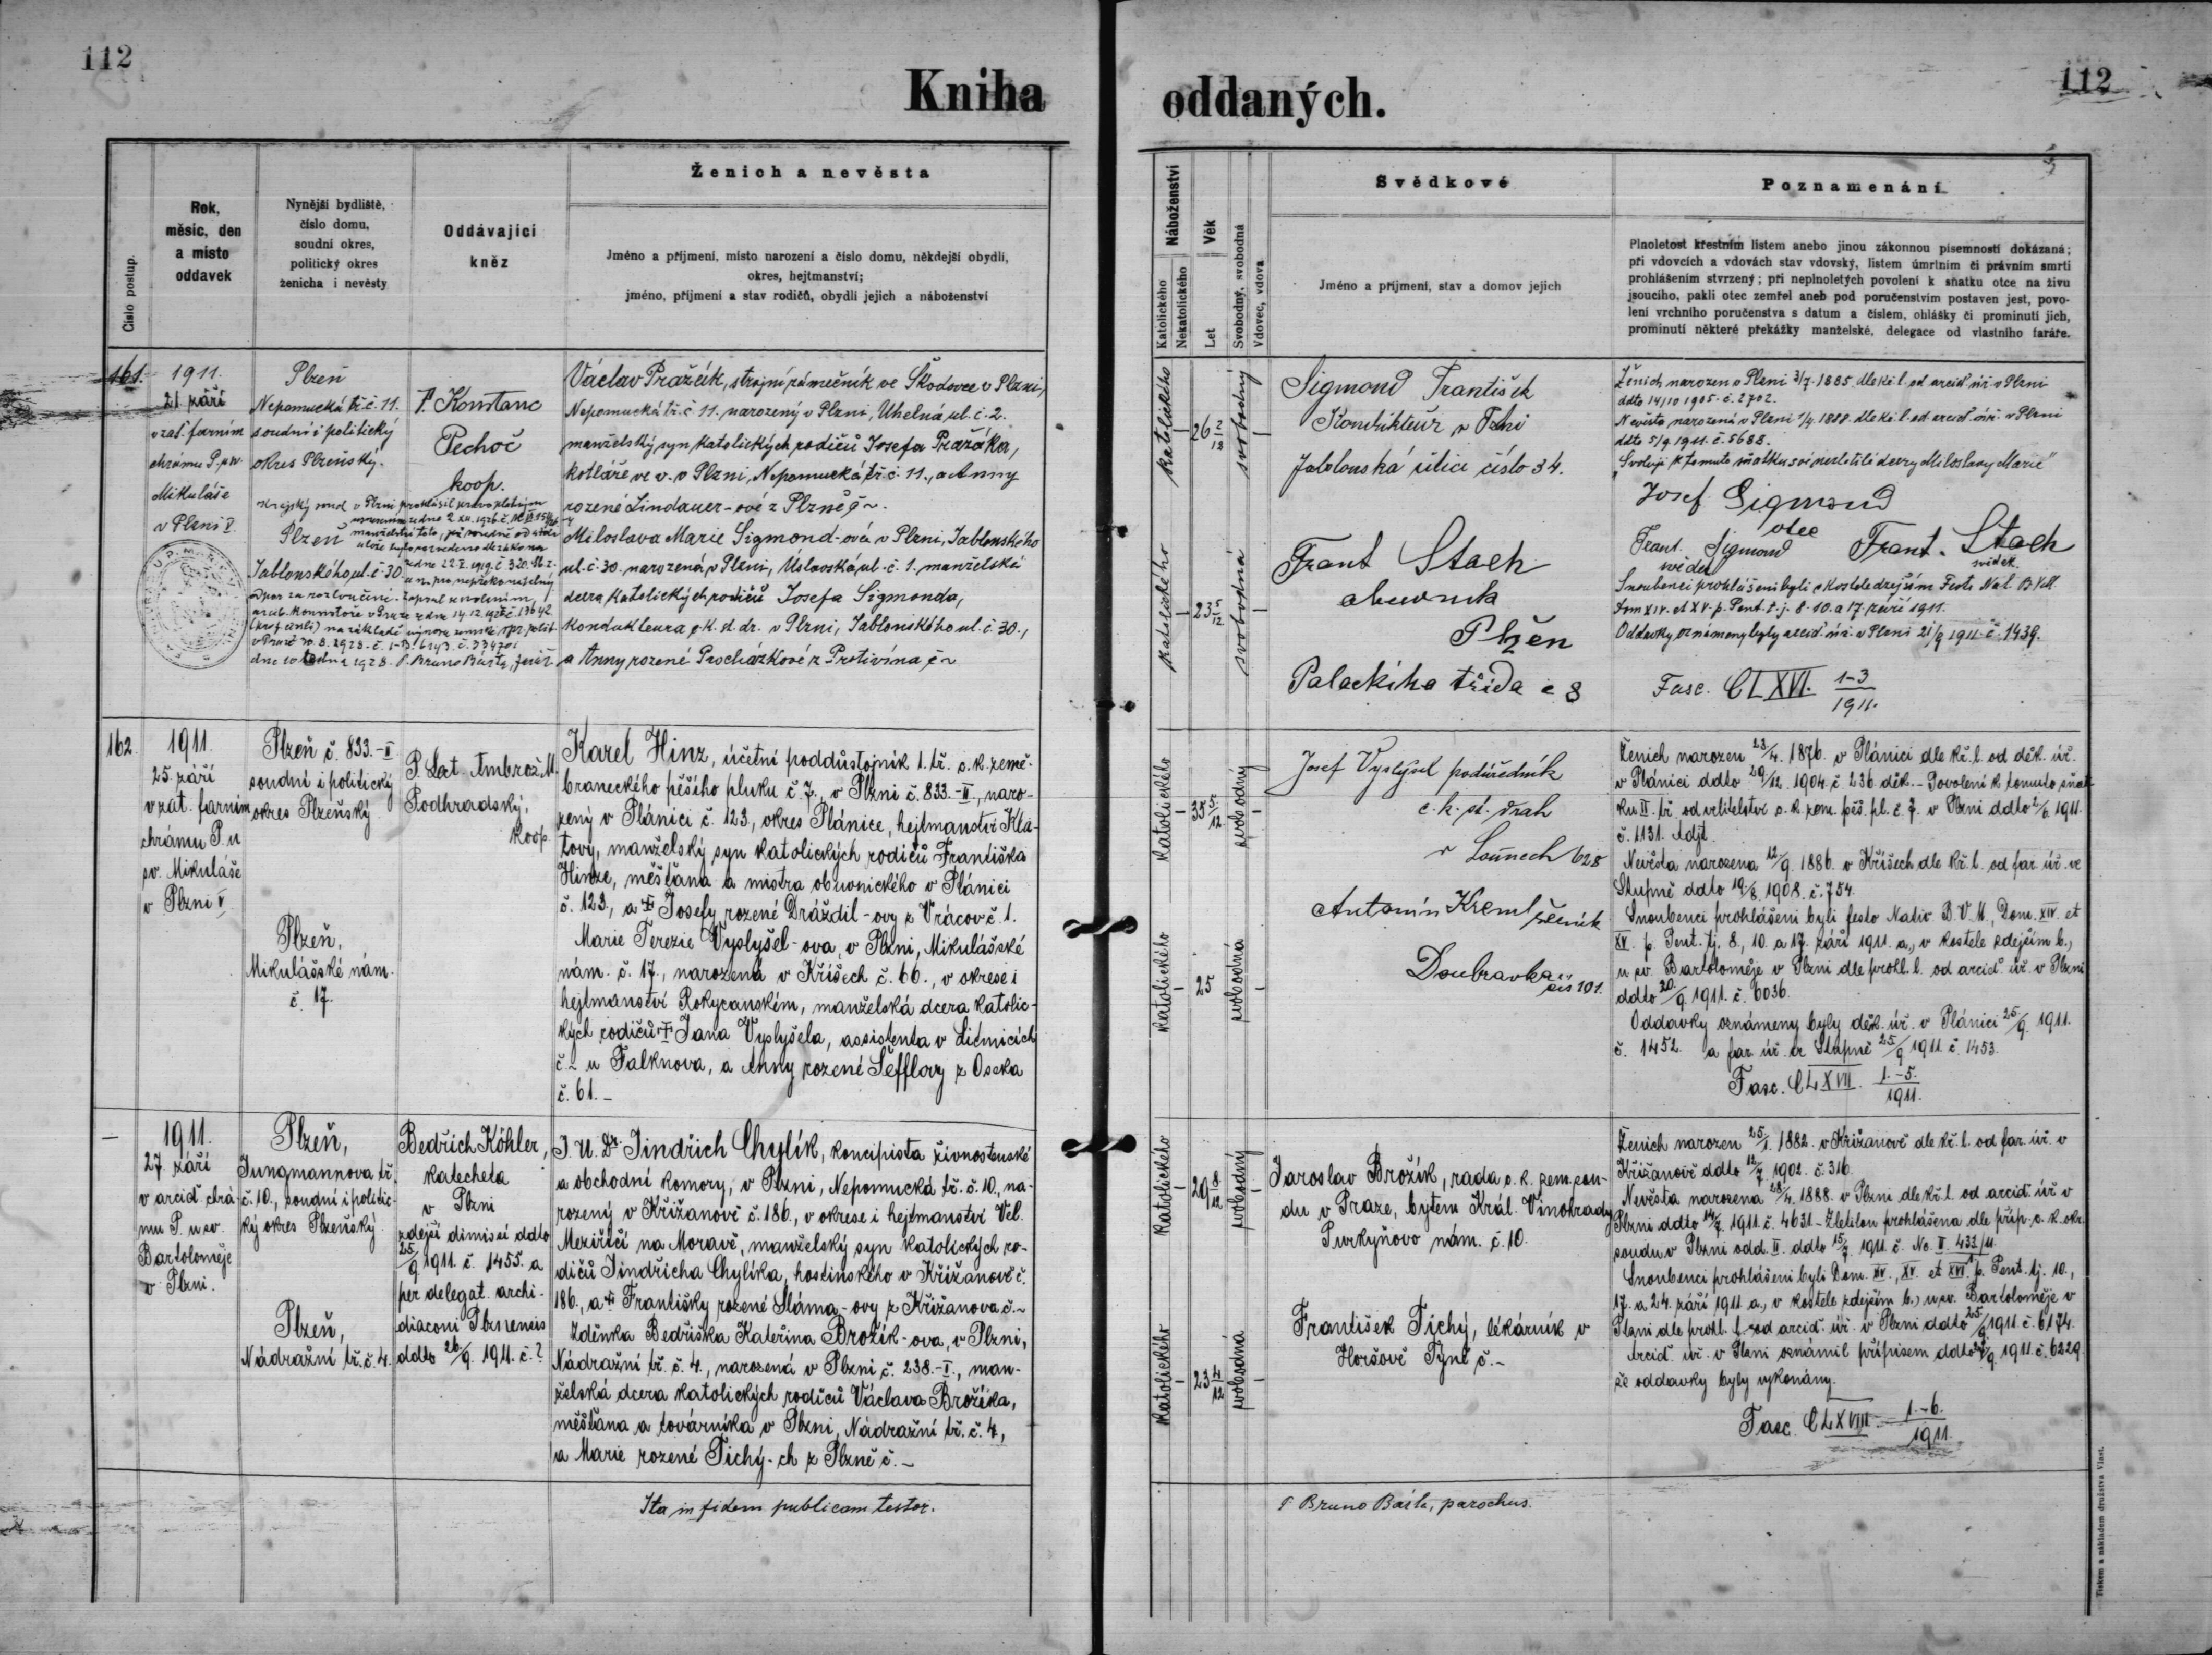 112
Kniha oddaných.
112
Číslo postup.
Rok,
měsíc, den
a místo
oddavek
Nynější bydliště,
číslo domu,
soudní okres,
politický okres
ženicha i nevěsty
Oddávající
kněz
Ženich a nevěsta
Jméno a příjmení, místo narození a číslo domu, někdejší obydlí,
okres, hejtmanství;
jméno, příjmení a stav rodičů, obydlí jejich a náboženství
Náboženství
Katolického
Nekatolického
Věk
Let
Svobodný, svobodná
Vdovec, vdova
Svědkové
Jméno a příjmení, stav a domov jejich
Poznamenání
Plnoletost křestním listem anebo jinou zákonnou písemností dokázaná;
při vdovcích a vdovách stav vdovský, listem úmrtním či právním smrti
prohlášením stvrzený; při neplnoletých povolení k sňatku otce na živu
jsoucího, pakli otec zemřel aneb pod poručenstvím postaven jest, povo-
lení vrchního poručenstva s datum a číslem, ohlášky či prominutí jich,
prominutí některé překážky manželské, delegace od vlastního faráře.
161.
1911.
21 září
v zat. farním
chrámu P. u sv.
Mikuláše
v Plzni V.
Plzeň
Nepomucká tř. č. 11.
soudní i politický
okres Plzeňský.
Plzeň
Jablonského ul. č. 30
P. Konstanc
Pechoč
koop.
Krajský soud v Plzni prohlásil pravoplatným
usnesením ze dne 2. XII. 1926 č.
manželství toto, již soudně od stolu i
lože bylo rozvedeno dle zákona
ze dne 22. V. 1919 č. 320 Sb. z.
a n. pro nepřekonatelný
odpor za rozloučeno. Zapsal s svolením
arcib. konsistoře v Praze ze dne 14. 12. 1928 č. 13642
na základě výnosu zemské spr. polit.
v Praze 30. 8. 1928
P. Bruno Bárta, farář
Václav Pražák, strojní zámečník ve Škodovce v Plzni,
Nepomucká tř. č. 11. narozený v Plzni, Uhelná ul. č. 2.
manželský syn katolických rodičů Josefa Pražáka,
kotláře ve v. v Plzni, Nepomucká tř. č. 11., a Anny
rozené Lindauer-ové z Plzně č ~.
Miloslava Marie Sigmond-ová v Plzni, Jablonského
ul. č. 30. narozená v Plzni, Úslavská ul. č. 1. manželská
dcera katolických rodičů Josefa Sigmonda,
kondukteura c. k. st. dr. v Plzni, Jablonského ul. č. 30.,
a Anny rozené Procházkové z Protivína č ~
katolického
26 2/12
svobodný
katolického
23 5/12
svobodná
Sigmond František
Kondukteur v Plzni
Jablonská ulice číslo 34.
Frant Stach
obuvník
Plzěn
Palackiho třída č 8
Ženich narozen v Plzni 3/7. 1885, dle kř. l. od arciď. úř. v Plzni
ddto 14/10 1905. č. 2702.
Nevěsta narozená v Plzni 1/4. 1888. dle kř. l. od arciď. úř. v Plzni
ddto 5/9. 1911. č. 5688.
Svoluji k tomuto sňatku své nezletilé dcery Miloslavy Marie"
Josef Sigmond
otec
Frant. Sigmond
svědek
Frant. Stach
svědek.
Snoubenci prohlášeni byli v kostele zdejším Festo Nat. B. V. M.
Dom XIV. et XV. p. Pent. t. j. 8. 10. a 17. září 1911.
Oddavky oznámeny byly arciď. úř. v Plzni 21/9 1911. č. 1439.
Fasc. CLXVI. 1-3/1911.
162.
1911.
25 září
v zat. farním
chrámu P. u
sv. Mikuláše
v Plzni V.
Plzeň č. 833.-II
soudní i politický
okres Plzeňský
Plzeň,
Mikulášské nám.
č. 17.
P. Lat. Ambrož M.
Podhradský,
koop.
Karel Hinz, účetní poddůstojník 1. tř. c. k. země-
braneckého pěšího pluku č. 7., v Plzni č. 833.-II., naro-
zený v Plánici č. 123, okres Plánice, hejtmanství Kla-
tovy, manželský syn katolických rodičů Františka
Hinze, měšťana a mistra obuvnického v Plánici
č. 123, a † Josefy rozené Dráždil-ovy z Vrácov č. 1.
Marie Terezie Vyslyšel-ova, v Plzni, Mikulášské
nám. č. 17., narozená v Kříšech č. 66., v okrese i
hejtmanství Rokycanském, manželská dcera katolic-
kých rodičů † Jana Vyslyšela, assistenta v Litmicích
č. ~ u Falknova, a Anny rozené Šefflovy z Oseka
č. 61.-
katolického
35 5/12
svobodný
katolického
25
svobodná
Josef Vyslyšel podúředník
c. k. st. drah
v Lounech 628
Antonín Kreml řezník
Doubravka čís 101.
Ženich narozen 23/4. 1876. v Plánici dle kř. l. od děk. úř.
v Plánici ddto 29/12. 1904. č. 236 děk. - Povolení k tomuto sňat-
ku II. tř. od velitelství c. k. zem. pěš. pl. č. 7. v Plzni ddto 2/6. 1911.
č. 1131. Adjt.
Nevěsta narozena 12/9. 1886. v Kříšech dle kř. l. od far. úř. ve
Stupně ddto 19/8. 1908. č. 754.
Snoubenci prohlášeni byli festo Nativ. B. V. M., Dom. XIV. et
XV. p. Pent. tj. 8., 10. a 17. září 1911. a., v kostele zdejším b.,
u sv. Bartoloměje v Plzni dle prohl. l. od arciď. úř. v Plzni
ddto 20/9. 1911. č. 6036.
Oddavky oznámeny byly děk. úř. v Plánici 25/9. 1911.
č. 1452. a far. úř. ve Stupně 25/9 1911. č. 1453.
Fasc. CLXVII. 1.-5./1911.
–
1911.
27 září
v arciď. chrá-
mu P. u sv.
Bartoloměje
v Plzni.
Plzeň,
Jungmannova tř.
č. 10., soudní i politic-
ký okres Plzeňský
Plzeň,
Nádražní tř. č. 4.
Bedřich Köhler,
katecheta
v Plzni
zdejší dimissí ddto
25/9 1911. č. 1455. a
per delegat. archi-
diaconi Plznensis
ddto 26/9. 1911. č.?
J. U. Dr. Jindřich Chylík, koncipista živnostenské
a obchodní komory, v Plzni, Nepomucká tř. č. 10., na-
rozený v Křižanově č. 186., v okrese i hejtmanství Vel.
Meziříčí na Moravě, manželský syn katolických ro-
dičů Jindřicha Chylíka, hostinského v Křižanově č.
186., a † Františky rozené Sláma-ovy z Křižanova č. ~
Zděnka Bedřiška Kateřina Brožík-ova, v Plzni,
Nádražní tř. č. 4., narozená v Plzni č. 238.-I., man-
želská dcera katolických rodičů Václava Brožíka,
měšťana a továrníka v Plzni, Nádražní tř. č. 4,
a Marie rozené Tichý-ch z Plzně č. -
katolického
29 8/12
svobodný
katolického
23 4/12
svobodná
Jaroslav Brožík, rada c. k. zem. sou-
du v Praze, bytem Král. Vinohrady
Purkyňovo nám. č. 10.
František Tichý, lékárník v
Horšově Týně č. -
Ženich narozen 25/1. 1882. v Křižanově dle kř. l. od far. úř. v
Křižanově ddto 12/7. 1902. č. 316.
Nevěsta narozena 28/4. 1888. v Plzni dle kř. l. od arciď. úř v
Plzni ddto 14/7. 1911. č. 4631 - Zletilou prohlášena dle příp. c. k. okr.
soudu v Plzni odd. II. ddto 15/7. 1911. č. Nc. II. 433/11.
Snoubenci prohlášeni byli Dom. XIV., XV. et XVI. p. Pent. tj. 10.,
17. a 24. září 1911 a., v kostele zdejším b.) u sv. Bartoloměje v
Plzni dle prohl. l. od arciď. úř. v Plzni ddto 25/9 1911. č. 6174.
Arciď. úř. v Plzni oznámil přípisem ddto 27/9. 1911. č. 6229.
že oddavky byly vykonány.
Fasc. CLXVIII 1.-6./1911.
Ita in fidem publicam testor.
P. Bruno Bárta, parochus.
Tiskem a nákladem družstva Vlast.